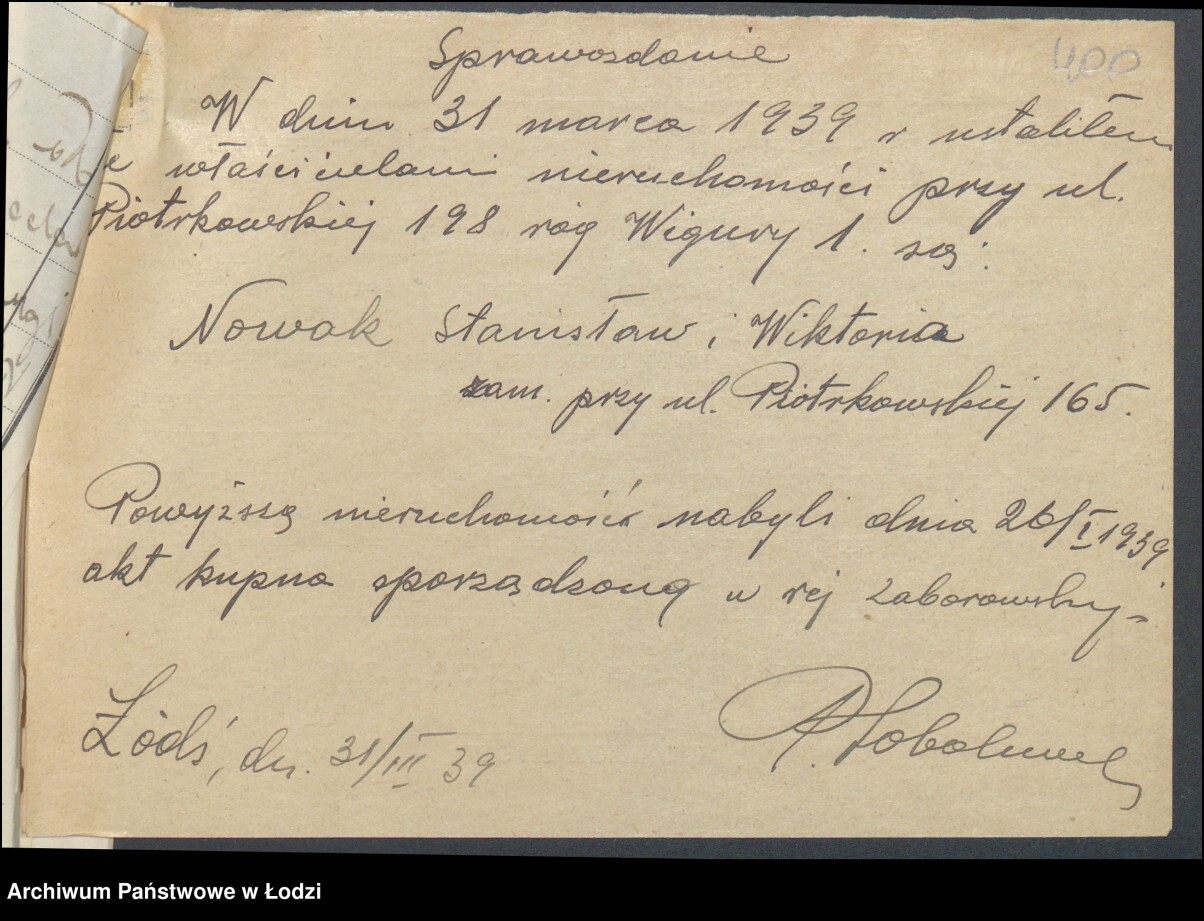 400
Sprawozdanie
W dniu 31 marca 1939 r ustaliłem
że właścicielami nieruchomości przy ul.
Piotrkowskiej 198 róg Wigury 1. są:
Nowak Stanisław i Wiktoria
zam. przy ul. Piotrkowskiej 165.
Powyższą nieruchomość nabyli dnia 26/I 1939
akt kupna sporządzono u rej Zaborowsky-
Łódź, dn. 31/III 39
Archiwum Państwowe w Łodzi